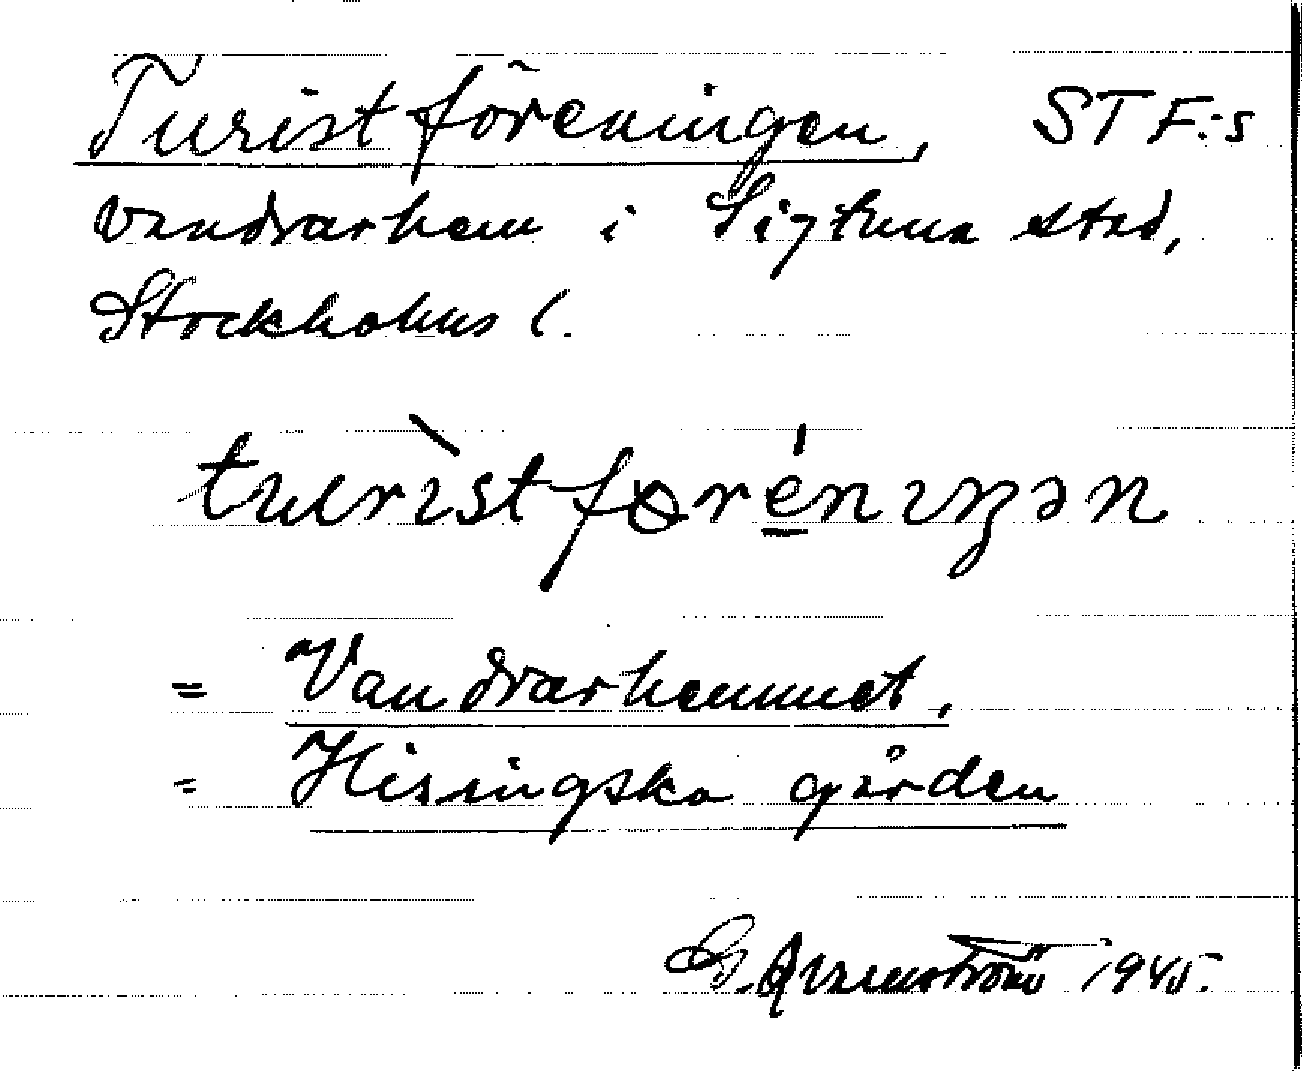 Turistföreningen, STF:s
vandrarhem i Sigtuna stad,
Stockholms l.
turìstførénıŋən
= Vandrarhemmet,
= Hisingska gården
G. Qvarnström 1945.